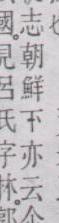 志朝鮮下亦云
國。見呂氏字林。